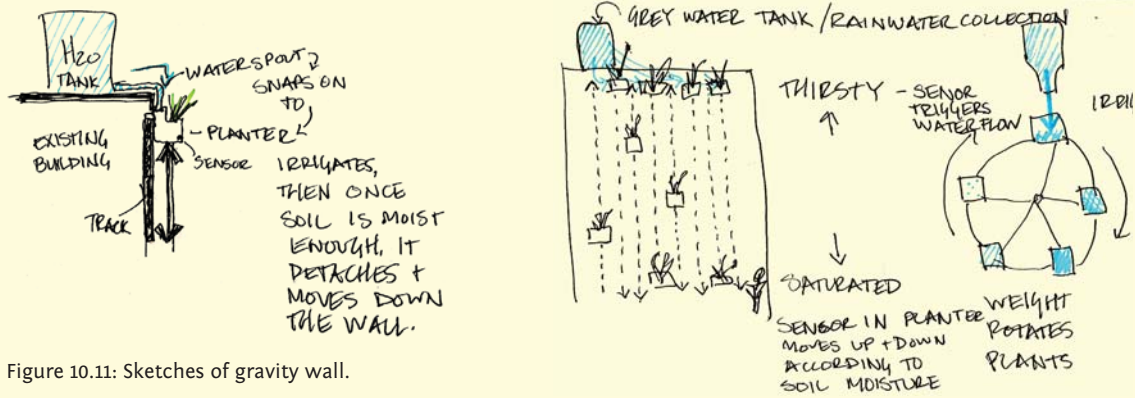 H2O
TANK
WATERSPOUT
SNAPS ON
TO
PLANTER
SENSOR
EXISTING
BUILDING
TRACK
IRRIGATES,
THEN ONCE
SOIL IS MOIST
ENOUGH, IT
DETACHES +
MOVES DOWN
THE WALL.
Figure 10.11: Sketches of gravity wall.
GREY WATER TANK / RAINWATER COLLECTION
THIRSTY - SENOR
TRIGGERS
WATERFLOW
SATURATED
SENSOR IN PLANTER
MOVES UP + DOWN
ACCORDING TO
SOIL MOISTURE
WEIGHT
ROTATES
PLANTS